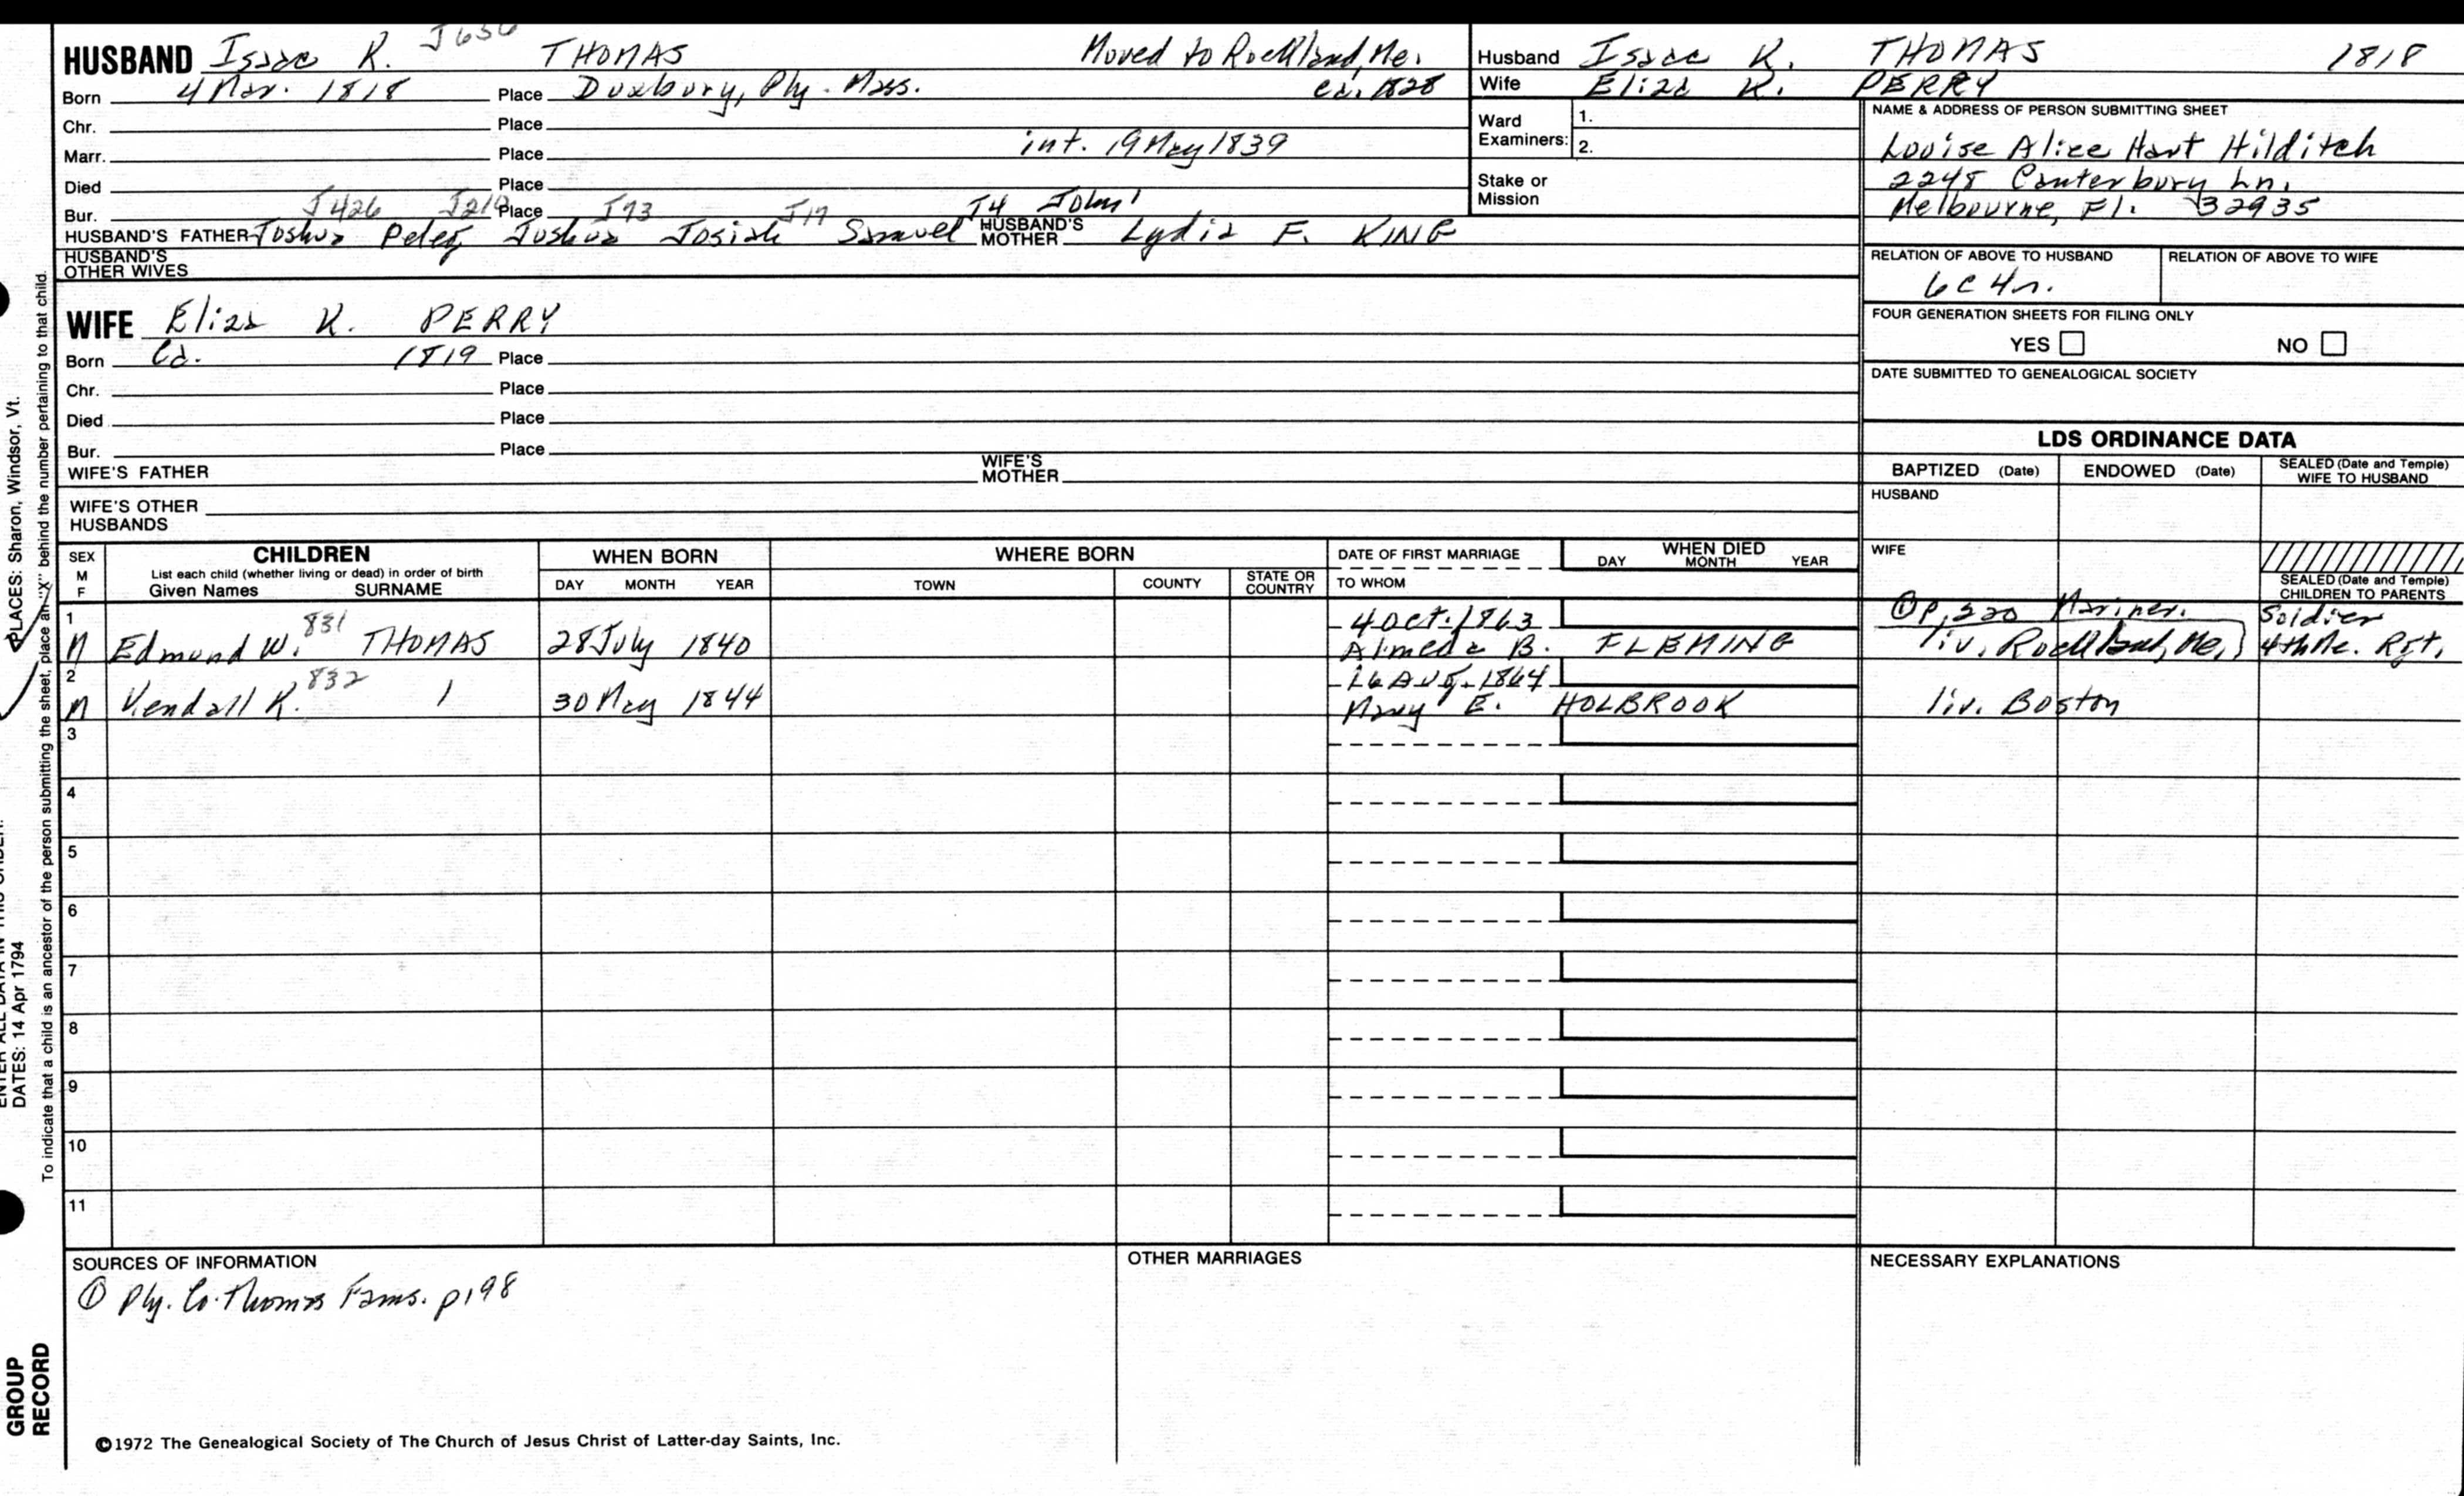 HUSBAND Isaac K. J636 THOMAS Moved to Rockland, Me.
Born 4 Mar. 1818 Place Duxbury, Ply. Mass. ca. 1828
Chr. Place
Marr. Place int. 19 May 1839
Died Place
Bur. Place
J426 J210 J73 J17 J4 John1
HUSBAND'S FATHER Joshua Peter, Joshua Josiah Samuel HUSBAND'S MOTHER Lydia F. KING
HUSBAND'S OTHER WIVES
WIFE Eliza K. PERRY
Born Ca. 1819 Place
Chr. Place
Died Place
Bur. Place
WIFE'S FATHER WIFE'S MOTHER
WIFE'S OTHER HUSBANDS
Husband Isaac K. THOMAS 1818
Wife Eliza K. PERRY
Ward Examiners: 1.
2.
Stake or Mission
NAME & ADDRESS OF PERSON SUBMITTING SHEET
Louise Alice Hart Hilditch
2248 Canterbury Ln.
Melbourne, Fl. 32935
RELATION OF ABOVE TO HUSBAND RELATION OF ABOVE TO WIFE
6c 4r.
FOUR GENERATION SHEETS FOR FILING ONLY
YES NO
DATE SUBMITTED TO GENEALOGICAL SOCIETY
LDS ORDINANCE DATA
BAPTIZED (Date) ENDOWED (Date) SEALED (Date and Temple) WIFE TO HUSBAND
HUSBAND
WIFE
SEALED (Date and Temple) CHILDREN TO PARENTS
SEX M F CHILDREN WHEN BORN WHERE BORN DATE OF FIRST MARRIAGE WHEN DIED
List each child (whether living or dead) in order of birth
Given Names SURNAME DAY MONTH YEAR TOWN COUNTY STATE OR COUNTRY TO WHOM DAY MONTH YEAR
1 4 Oct. 1863 ① P. 220 Mariner. Soldier
M Edmund W. 831 THOMAS 28 July 1840 Almeda B. FLEMING liv. Rockland, Me. 4th Me. Rgt.
2 16 Aug. 1864
M Kendall K. 832 30 May 1844 Mary E. HOLBROOK liv. Boston
3
4
5
6
7
8
9
10
11
SOURCES OF INFORMATION OTHER MARRIAGES NECESSARY EXPLANATIONS
① Ply. Co. Thomas Fams. p198
©1972 The Genealogical Society of The Church of Jesus Christ of Latter-day Saints, Inc.
PLACES: Sharon, Windsor, Vt.
DATES: 14 Apr 1794
To indicate that a child is an ancestor of the person submitting the sheet, place an "X" behind the number pertaining to that child.
GROUP
RECORD